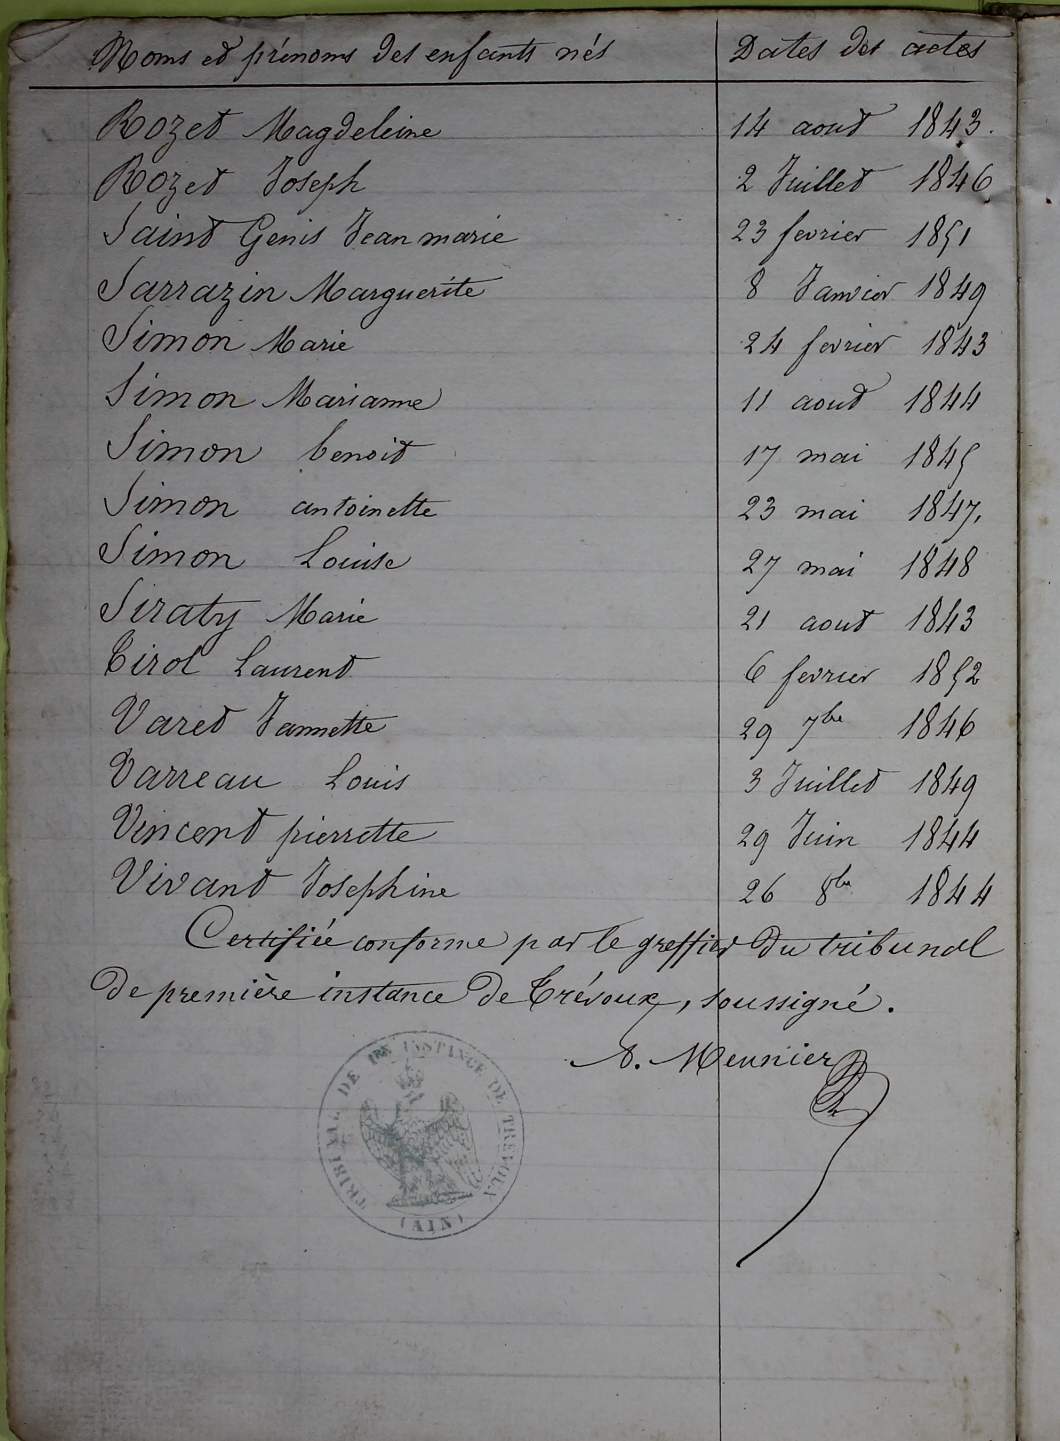 Noms et prénoms des enfants nés Dates des actes
Rozet Magdeleine 14 aout 1843.
Rozet Joseph 2 Juillet 1846
Saint Genis Jean marie 23 fevrier 1851
Sarrazin Marguerite 8 Janvier 1849
Simon Marie 24 fevrier 1843
Simon Marianne 11 aout 1844
Simon benoit 17 mai 1845
Simon antoinette 23 mai 1847.
Simon Louise 27 mai 1848
Siraty Marie 21 aout 1843
Tirol Laurent 6 fevrier 1852
Varet Jannette 29 7bre 1846
Varreau Louis 3 Juillet 1849
Vincent pierrette 29 Juin 1844
Vivant Josephine 26 8bre 1844
Certifiée conforme par le greffier du tribunal
de première instance de Trévoux, soussigné.
A. Meunier
TRIBUNAL DE 1RE INSTANCE DE TREVOUX
(AIN)